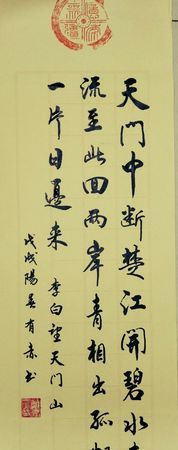 天門中断楚江開碧水
流至此回两岸青相出孤
一片日邊来 李白望天门山
戊戌陽有书